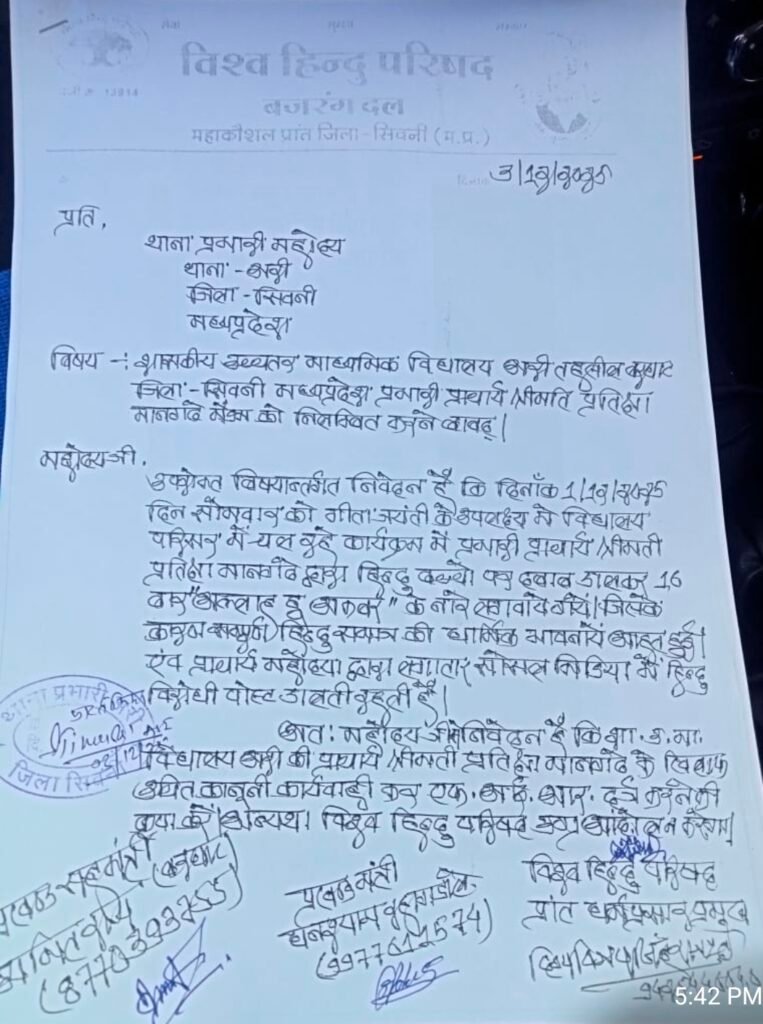 विश्व हिन्दु परिषद
बजरंग दल
महाकौशल प्रांत जिला-सिवनी (म.प्र.)
3/12/2025
प्रति,
थाना प्रभारी महोदय
थाना - अरी
जिला - सिवनी
मध्यप्रदेश
विषय -: शासकीय उच्चतर माध्यमिक विद्यालय अरी तहसील बरघाट
जिला - सिवनी मध्यप्रदेश प्रभारी प्राचार्य श्रीमति प्रतिक्षा
मानगढे मैडम को निलम्बित करने बावद्।
महोदय जी,
उपरोक्त विषयान्तर्गत निवेदन है कि दिनाँक 1/12/2025
दिन सोमवार को गीता जयंती के उपलक्ष्य मे विद्यालय
परिसर में चल रहे कार्यक्रम में प्रभारी प्राचार्य श्रीमती
प्रतिक्षा मानगढे द्वारा हिन्दु बच्चो पर दबाव डालकर 16
बार "अल्लाह हू अकबर" के नारे लगावाये गये। जिसके
कारण सम्पूर्ण हिन्दु समाज की धार्मिक भावनायें आहत हुई।
एंव प्राचार्य महोदया द्वारा लगातार सोसल मिडिया में हिन्दु
विरोधी पोस्ट डालती रहती है।
अतः महोदय जी से निवेदन है कि शा. उ. मा.
विद्यालय अरी की प्राचार्य श्रीमती प्रतिक्षा मानगढे के खिलाफ
उचित कानूनी कार्यवाही कर एफ. आई. आर. दर्ज करने की
कृपा करें। अन्यथा विश्व हिन्दु परिषद उग्र आंदोलन करेगा।
थाना प्रभारी
जिला सिवनी
प्रखण्ड सहमंत्री
(बरघाट)
प्रखण्ड मंत्री
घनश्याम
विश्व हिन्दु परिषद
प्रांत धर्मप्रसार प्रमुख
5:42 PM